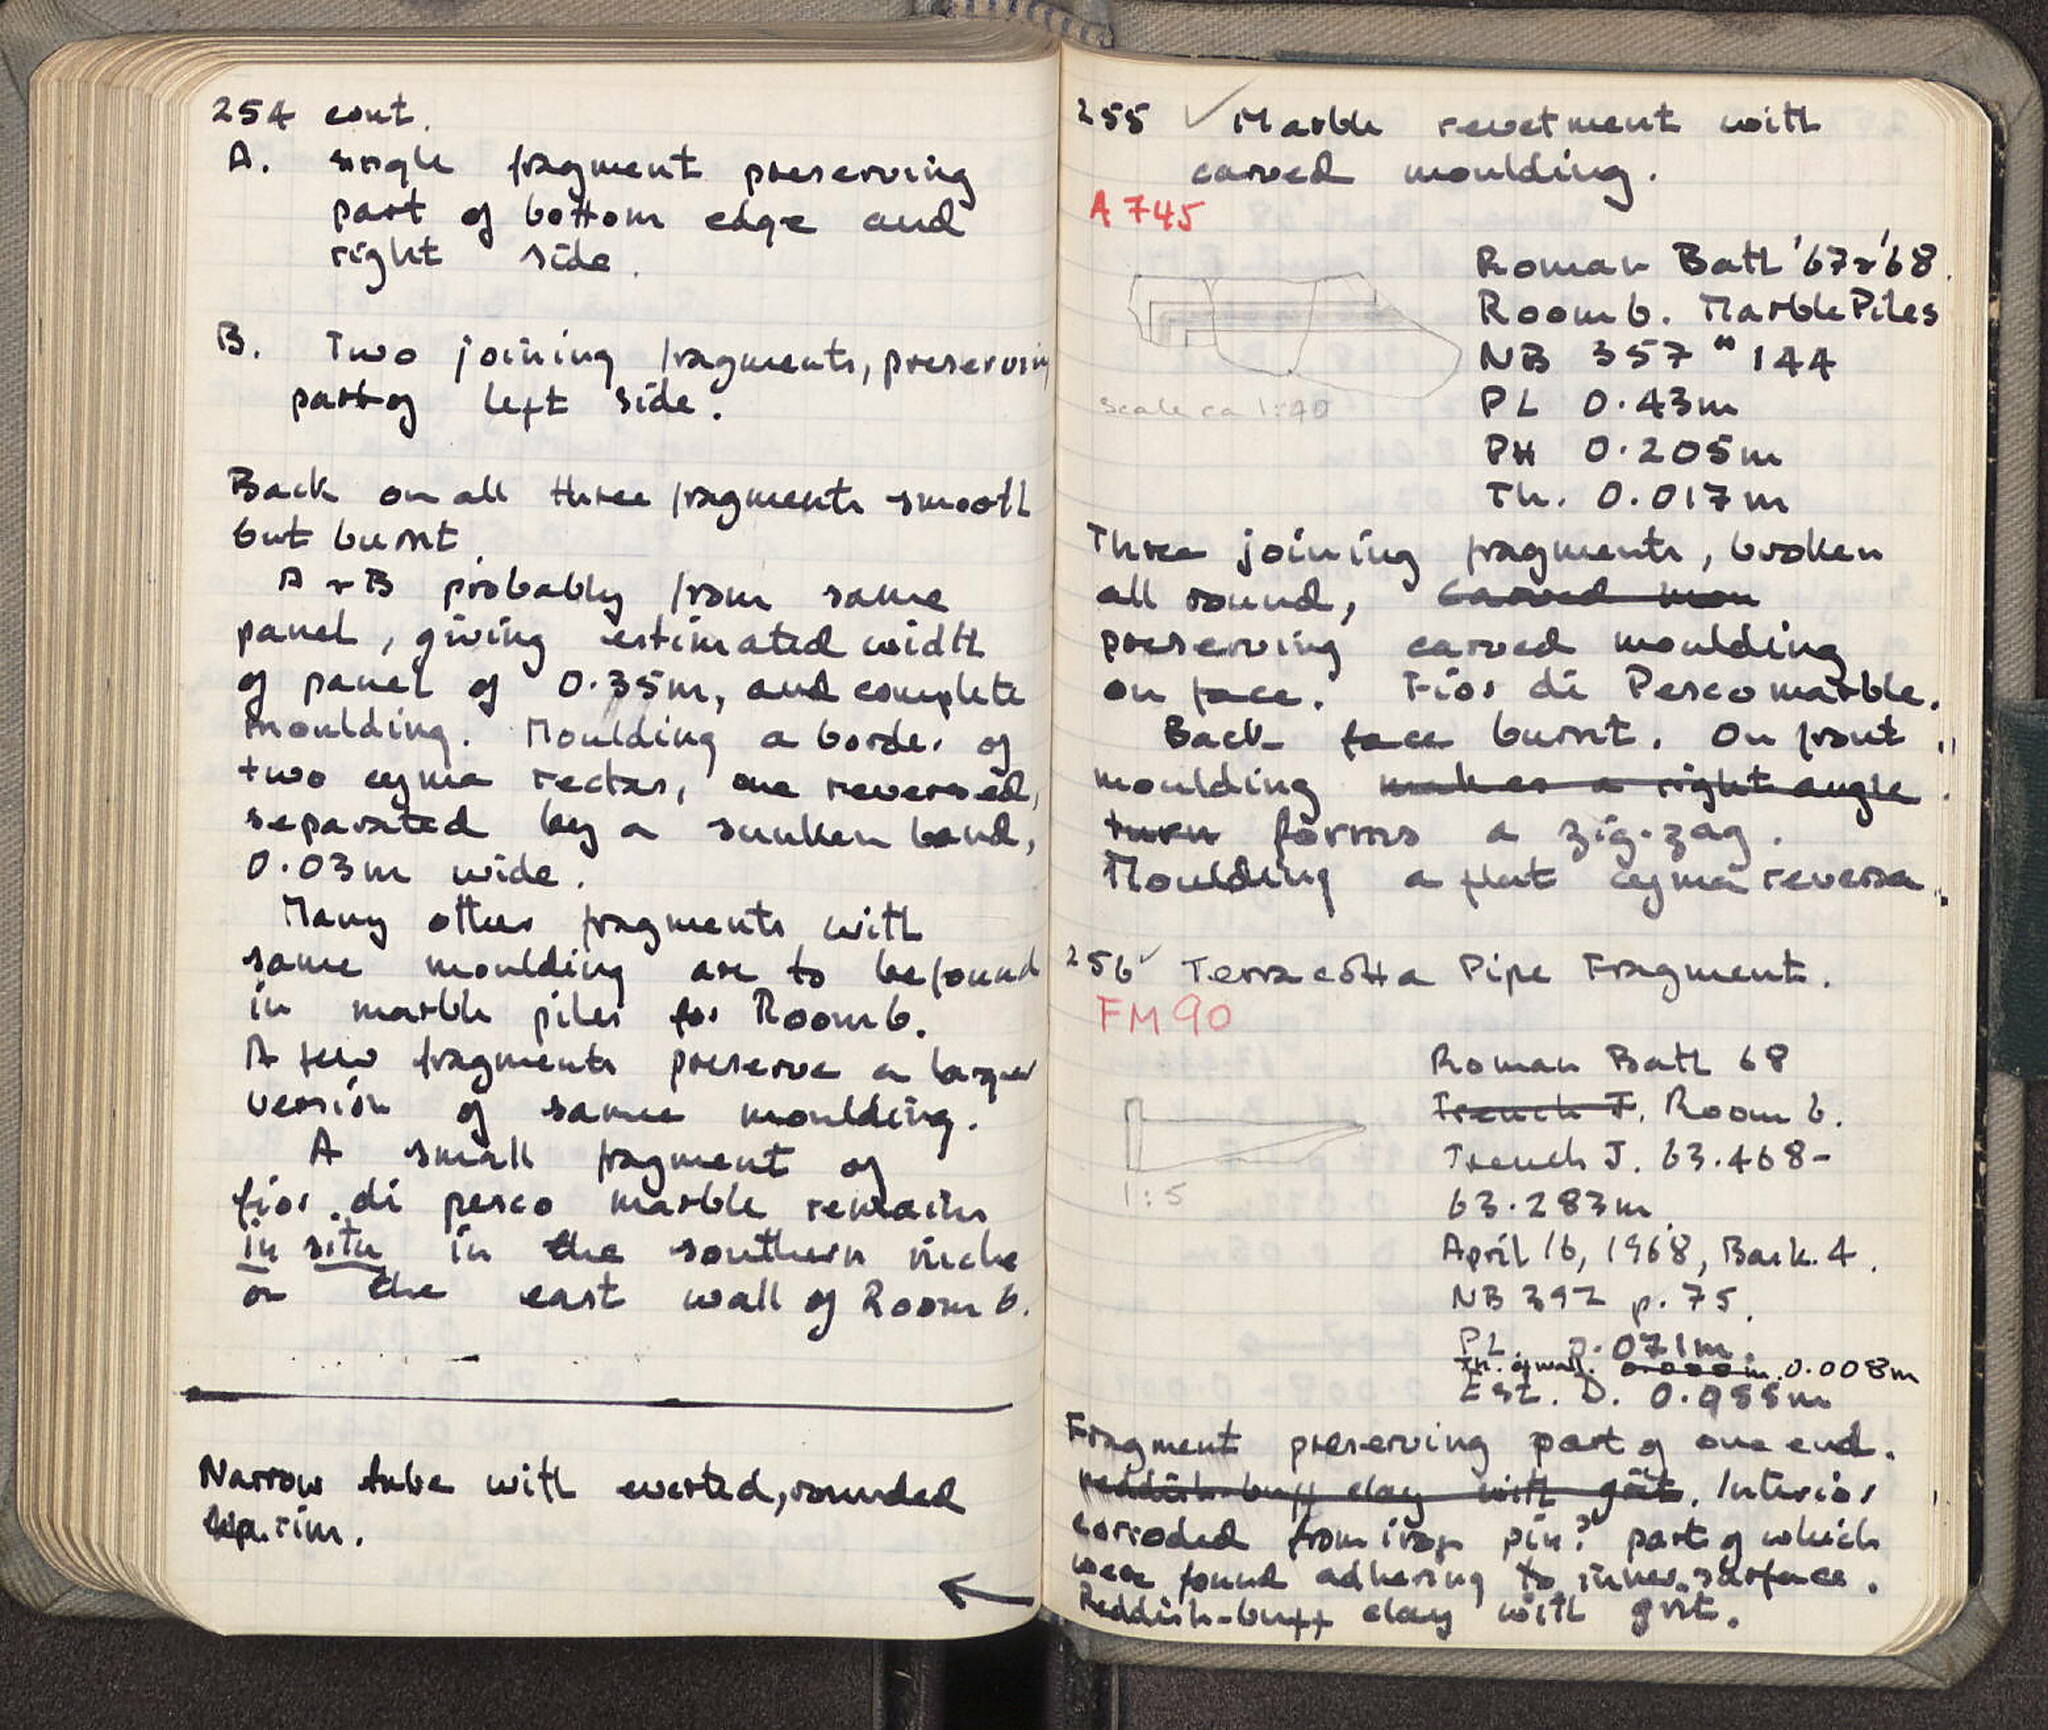 254 cont.
A. single fragment preserving
part of bottom edge and
right side.
B. Two joining fragments, preserving
part of left side.
Back on all three fragments smooth
but burnt.
A + B probably from same
panel, giving estimated width
of panel of 0.35m, and complete
moulding. Moulding a border of
two cyma rectas, one reversed,
separated by a sunken band,
0.03m wide.
Many other fragments with
same moulding are to be found
in marble piles for Room 6.
A few fragments preserve a larger
version of same moulding.
A small fragment of
fior di pesco marble remains
in situ in the southern niche
on the east wall of Room 6.
Narrow tube with everted, rounded
lip. rim.
255 ✓ Marble revetment with
carved moulding.
A 745
Roman Bath '67+'68.
Room 6. Marble Piles
NB 357 " 144
PL 0.43m
PH 0.205m
Th. 0.017m
scale ca 1:10
Three joining fragments, broken
all round, carved mou
preserving carved moulding
on face. Fior di Pesco marble.
Back face burnt. On front
moulding makes a right angle
turn forms a zig-zag.
Moulding a flat cyma reversa.
256 ✓ Terracotta Pipe Fragment.
FM 90
Roman Bath 68
Trench J. Room 6.
Trench J. 63.468-
63.283m.
April 16, 1968, Bask. 4.
NB 392 p. 75.
PL. 0.071m.
Th. of wall. 0.008m
Est. D. 0.055m
1:5
Fragment preserving part of one end.
reddish-buff clay with grit. Interior
corroded from iron pin? part of which
were found adhering to inner surface.
Reddish-buff clay with grit.